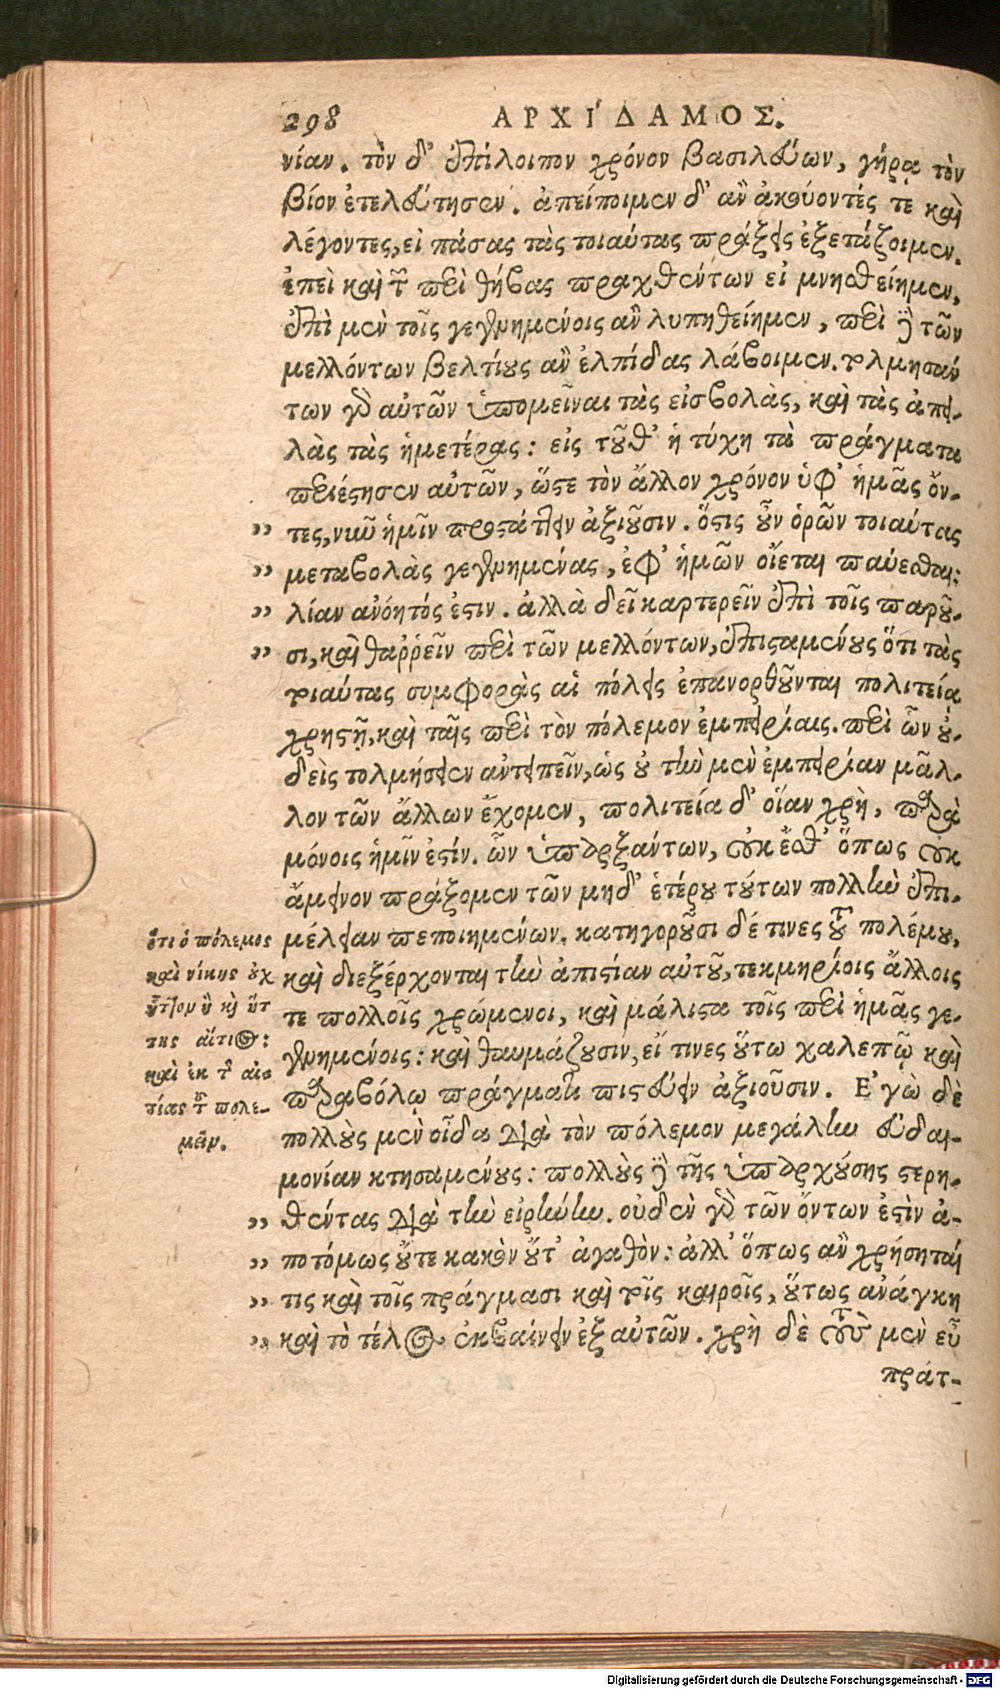 298 ΑΡΧΙ´ΔΑΜΟΣ.
νίαν. τὸν δ' ἐπίλοιπον χρόνον βασιλεύων, γήρᾳ τὸν
βίον ἐτελεύτησεν. ἀπείποιμεν δ' ἂν ἀκούοντές τε καὶ
λέγοντες, εἰ πάσας τὰς τοιαύτας πράξεις ἐξετάζοιμεν.
ἐπεὶ καὶ τῶν περὶ Θήβας πραχθέντων εἰ μνησθείημεν,
ἐπὶ μὲν τοῖς γεγενημένοις ἂν λυπηθείημεν, περὶ δὲ τῶν
μελλόντων βελτίους ἂν ἐλπίδας λάβοιμεν. τολμησάν
των γὰρ αὐτῶν ὑπομεῖναι τὰς εἰσβολὰς, καὶ τὰς ἀπει-
λὰς τὰς ἡμετέρας: εἰς τοῦθ' ἡ τύχη τὰ πράγματα
περιέστησεν αὐτῶν, ὥστε τὸν ἄλλον χρόνον ὑφ' ἡμᾶς ὄν-
,, τες, νῦν ἡμῖν προστάττειν ἀξιοῦσιν. ὅστις οὖν ὁρῶν τοιαύτας
,, μεταβολὰς γεγενημένας, ἐφ' ἡμῶν οἴεται παύεσθαι:
,, λίαν ἀνόητός ἐστιν. ἀλλὰ δεῖ καρτερεῖν ἐπὶ τοῖς παροῦ-
,, σι, καὶ θαῤῥεῖν περὶ τῶν μελλόντων, ἐπισταμένους ὅτι τὰς
τοιαύτας συμφορὰς αἱ πόλεις ἐπανορθοῦνται πολιτείᾳ
χρηστῇ, καὶ ταῖς περὶ τὸν πόλεμον ἐμπειρίαις. περὶ ὧν οὐ-
δεὶς τολμήσειεν ἀντειπεῖν, ὡς οὐ τὴν μὲν ἐμπειρίαν μᾶλ-
λον τῶν ἄλλων ἔχομεν, πολιτεία δ' οἵαν χρὴ, παρὰ
μόνοις ἡμῖν ἐστίν. ὧν ὑπαρξάντων, οὐκ ἔσθ' ὅπως οὐκ
ἄμεινον πράξομεν τῶν μηδ' ἑτέρου τούτων πολλὴν ἐπι-
μέλειαν πεποιημένων. κατηγοροῦσι δέ τινες τοῦ πολέμου,
καὶ διεξέρχονται τὴν ἀπιστίαν αὐτοῦ, τεκμηρίοις ἄλλοις
τε πολλοῖς χρώμενοι, καὶ μάλιστα τοῖς περὶ ἡμᾶς γε-
γενημένοις: καὶ θαυμάζουσιν, εἴ τινες οὕτω χαλεπῷ καὶ
παραβόλῳ πράγματι πιστεύειν ἀξιοῦσιν. Ἐγὼ δὲ
πολλοὺς μὲν οἶδα διὰ τὸν πόλεμον μεγάλην εὐδαι-
μονίαν κτησαμένους: πολλοὺς δὲ τῆς ὑπαρχούσης στερη-
,, θέντας διὰ τὴν εἰρήνην. οὐδὲν γὰρ τῶν ὄντων ἐστὶν ἀ-
,, ποτόμως οὔτε κακὸν οὔτ' ἀγαθὸν: ἀλλ' ὅπως ἂν χρήσηταί
,, τις καὶ τοῖς πράγμασι καὶ τοῖς καιροῖς, οὕτως ἀνάγκη
,, καὶ τὸ τέλος ἐκβαίνειν ἐξ αὐτῶν. χρὴ δὲ τοὺς μὲν εὖ
πράτ-
ὅτι ὁ πόλεμος
καὶ νίκης οὐχ
ἧττον ἢ καὶ ἥτ
της αἴτιος:
καὶ ἐκ τῶν αἰσ
τίας τῶν πολε-
Digitalisierung gefördert durch die Deutsche Forschungsgemeinschaft - DFG